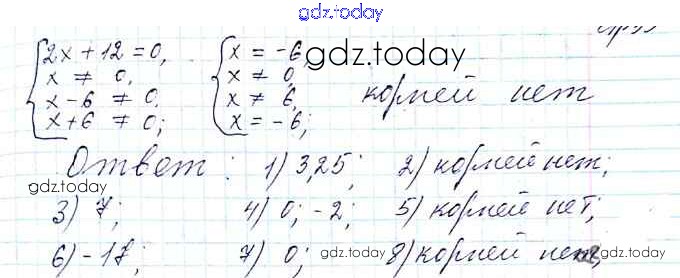 gdz.today
{ 2x + 12 = 0, { x = -6,
x ≠ 0, x ≠ 0, gdz.today
x - 6 ≠ 0, x ≠ 6, корней нет
x + 6 ≠ 0; x = -6;
Ответ: 1) 3,25; 2) корней нет;
gdz.today
3) 7; 4) 0; -2; 5) корней нет;
6) -17; 7) 0; gdz.today 8) корней нет, gdz.today